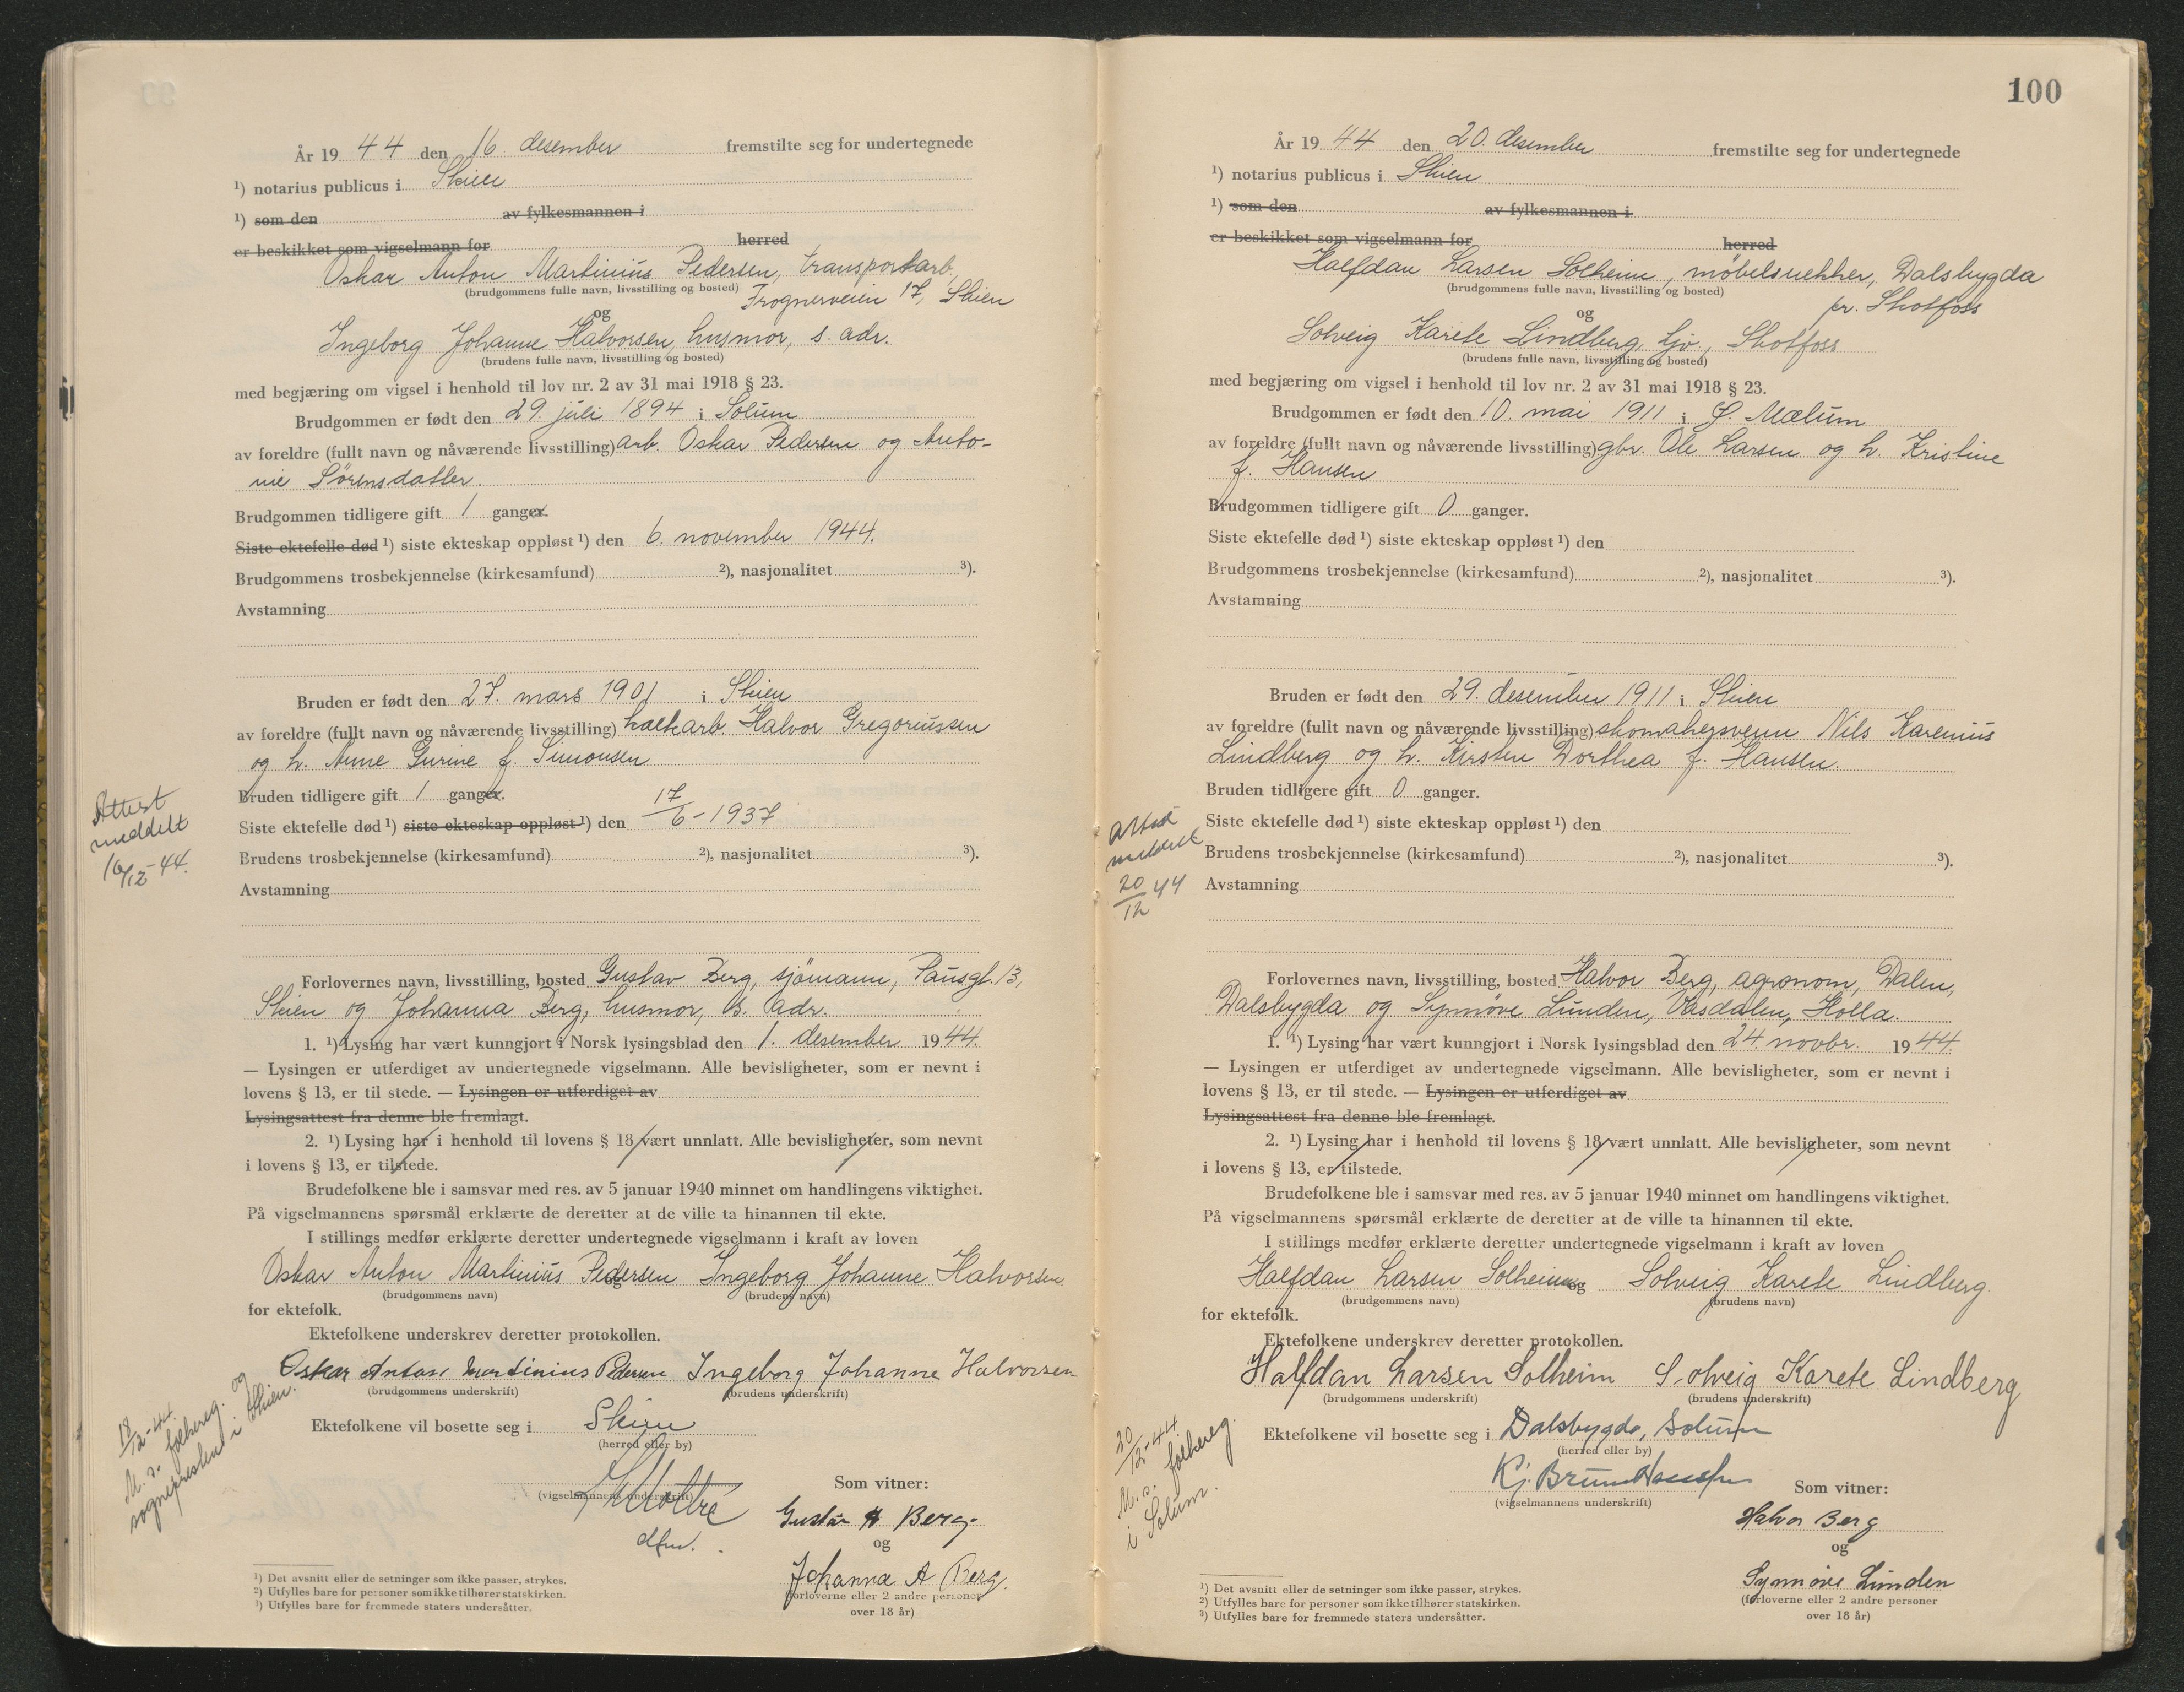 År 19 44 den 16. desember fremstilte seg for undertegnede
¹) notarius publicus i Skien
¹) som den av fylkesmannen i
er beskikket som vigselmann for herred
Oskar Anton Martinius Pedersen, transportarb.,
(brudgommens fulle navn, livsstilling og bosted) Frognerveien 17, Skien
og
Ingeborg Johanne Halvorsen, husmor, s. adr.
(brudens fulle navn, livsstilling og bosted)
med begjæring om vigsel i henhold til lov nr. 2 av 31 mai 1918 § 23.
Brudgommen er født den 29. juli 1894 i Solum
av foreldre (fullt navn og nåværende livsstilling) arb. Oskar Pedersen og Anto-
nie Sørensdatter.
Brudgommen tidligere gift 1 ganger.
Siste ektefelle død ¹) siste ekteskap oppløst ¹) den 6. november 1944.
Brudgommens trosbekjennelse (kirkesamfund) ²), nasjonalitet ³).
Avstamning
Bruden er født den 27. mars 1901 i Skien
av foreldre (fullt navn og nåværende livsstilling) Halvor Gregoriussen
og h. Anne Gurine f. Simonsen
Bruden tidligere gift 1 ganger.
Siste ektefelle død ¹) siste ekteskap oppløst ¹) den 17/6-1937
Brudens trosbekjennelse (kirkesamfund) ²), nasjonalitet ³).
Avstamning
Attest
meddelt
16/12-44.
Forlovernes navn, livsstilling, bosted Gustav Berg, sjömann, Pausgt. 13,
Skien og Johanna Berg, husmor, s. adr.
1. ¹) Lysing har vært kunngjort i Norsk lysingsblad den 1. desember 1944.
— Lysingen er utferdiget av undertegnede vigselmann. Alle bevisligheter, som er nevnt i
lovens § 13, er til stede. — Lysingen er utferdiget av
Lysingsattest fra denne ble fremlagt.
2. ¹) Lysing har i henhold til lovens § 18 vært unnlatt. Alle bevisligheter, som nevnt
i lovens § 13, er tilstede.
Brudefolkene ble i samsvar med res. av 5 januar 1940 minnet om handlingens viktighet.
På vigselmannens spørsmål erklærte de deretter at de ville ta hinannen til ekte.
I stillings medfør erklærte deretter undertegnede vigselmann i kraft av loven
Oskar Anton Martinius Pedersen og Ingeborg Johanne Halvorsen
(brudgommens navn) (brudens navn)
for ektefolk.
Ektefolkene underskrev deretter protokollen.
Oskar Anton Martinius Pedersen Ingeborg Johanne Halvorsen
(brudgommens underskrift) (brudens underskrift)
Ektefolkene vil bosette seg i Skien
(herred eller by)
18/12-44.
M. s. folkereg. og
sognepresten i Skien.
(vigselmannens underskrift)
dfm.
Som vitner:
Gustav A Berg
og
Johanna A Berg.
(forloverne eller 2 andre personer
over 18 år)
¹) Det avsnitt eller de setninger som ikke passer, strykes.
²) Utfylles bare for personer som ikke tilhører statskirken.
³) Utfylles bare for fremmede staters undersåtter.
100
År 19 44 den 20. desember fremstilte seg for undertegnede
¹) notarius publicus i Skien
¹) som den av fylkesmannen i
er beskikket som vigselmann for herred
Halfdan Larsen Solheim, møbelsnekker, Dalsbygda
(brudgommens fulle navn, livsstilling og bosted) pr. Skotfoss
og
Solveig Karete Lindberg, Skotfoss
(brudens fulle navn, livsstilling og bosted)
med begjæring om vigsel i henhold til lov nr. 2 av 31 mai 1918 § 23.
Brudgommen er født den 10. mai 1911 i S. Mælum
av foreldre (fullt navn og nåværende livsstilling) gbr. Ole Larsen og h. Kristine
f. Hansen
Brudgommen tidligere gift 0 ganger.
Siste ektefelle død ¹) siste ekteskap oppløst ¹) den
Brudgommens trosbekjennelse (kirkesamfund) ²), nasjonalitet ³).
Avstamning
Bruden er født den 29. desember 1911 i Skien
av foreldre (fullt navn og nåværende livsstilling) skomakersvenn Nils Karenius
Lindberg og h. Kirsten Dorthea f. Hansen.
Bruden tidligere gift 0 ganger.
Siste ektefelle død ¹) siste ekteskap oppløst ¹) den
Brudens trosbekjennelse (kirkesamfund) ²), nasjonalitet ³).
Avstamning
Attest
meddelt
20/12 44
Forlovernes navn, livsstilling, bosted Halvor Berg, agronom, Dalen,
Dalsbygda og Synnøve Lunden, Vasdalen, Holla.
1. ¹) Lysing har vært kunngjort i Norsk lysingsblad den 24. novbr. 1944.
— Lysingen er utferdiget av undertegnede vigselmann. Alle bevisligheter, som er nevnt i
lovens § 13, er til stede. — Lysingen er utferdiget av
Lysingsattest fra denne ble fremlagt.
2. ¹) Lysing har i henhold til lovens § 18 vært unnlatt. Alle bevisligheter, som nevnt
i lovens § 13, er tilstede.
Brudefolkene ble i samsvar med res. av 5 januar 1940 minnet om handlingens viktighet.
På vigselmannens spørsmål erklærte de deretter at de ville ta hinannen til ekte.
I stillings medfør erklærte deretter undertegnede vigselmann i kraft av loven
Halfdan Larsen Solheim og Solveig Karete Lindberg.
(brudgommens navn) (brudens navn)
for ektefolk.
Ektefolkene underskrev deretter protokollen.
Halfdan Larsen Solheim Solveig Karete Lindberg
(brudgommens underskrift) (brudens underskrift)
Ektefolkene vil bosette seg i Dalsbygda, Solum
(herred eller by)
20/12-44
M. s. folkereg.
i Solum.
Kj. Bruun
(vigselmannens underskrift)
Som vitner:
Halvor Berg
og
Synnøve Lunden
(forloverne eller 2 andre personer
over 18 år)
¹) Det avsnitt eller de setninger som ikke passer, strykes.
²) Utfylles bare for personer som ikke tilhører statskirken.
³) Utfylles bare for fremmede staters undersåtter.